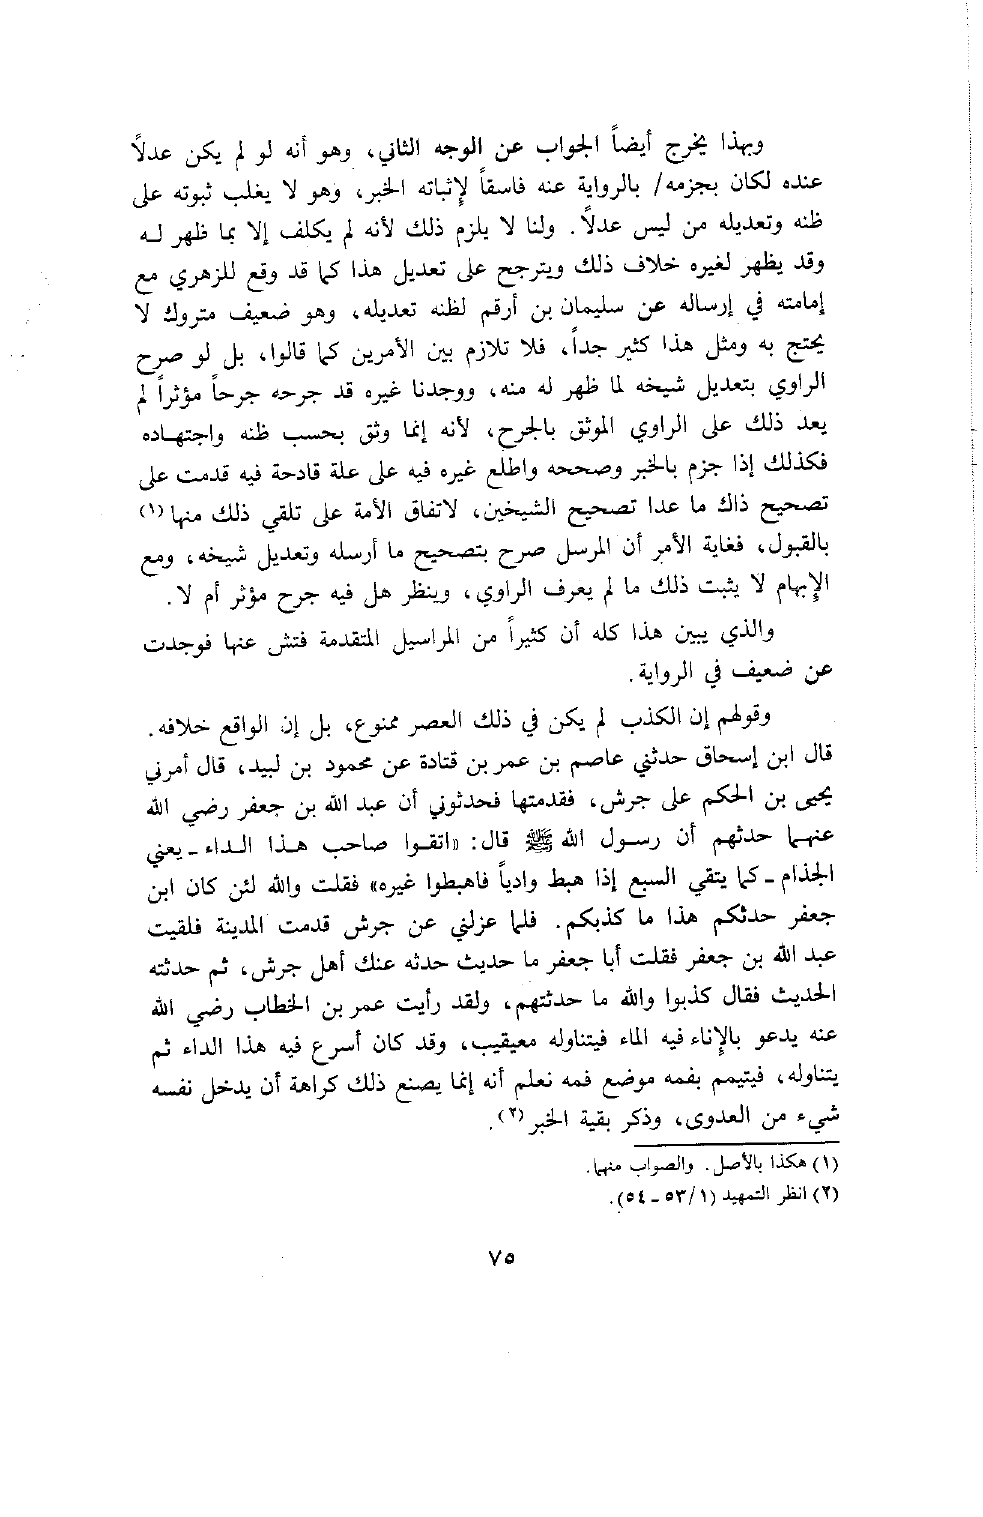 وبهذا يخرج أيضاً الجواب عن الوجه الثاني، وهو أنه لو لم يكن عدلاً
عنده لكان بجزمه/ بالرواية عنه فاسقاً لإثباته الخبر، وهو لا يغلب ثبوته على
ظنه وتعديله من ليس عدلاً. ولنا لا يلزم ذلك لأنه لم يكلف إلا بما ظهر له
وقد يظهر لغيره خلاف ذلك ويترجح على تعديل هذا كما قد وقع للزهري مع
إمامته في إرساله عن سليمان بن أرقم لظنه تعديله، وهو ضعيف متروك لا
يحتج به ومثل هذا كثير جداً، فلا تلازم بين الأمرين كما قالوا، بل لو صرح
الراوي بتعديل شيخه لما ظهر له منه، ووجدنا غيره قد جرحه جرحاً مؤثراً لم
يعد ذلك على الراوي الموثق بالجرح، لأنه إنما وثق بحسب ظنه واجتهاده
فكذلك إذا جزم بالخبر وصححه واطلع غيره فيه على علة قادحة فيه قدمت على
تصحيح ذاك ما عدا تصحيح الشيخين، لاتفاق الأمة على تلقي ذلك منها (١)
بالقبول، فغاية الأمر أن المرسل صرح بتصحيح ما أرسله وتعديل شيخه، ومع
الإبهام لا يثبت ذلك ما لم يعرف الراوي، وينظر هل فيه جرح مؤثر أم لا.
والذي يبين هذا كله أن كثيراً من المراسيل المتقدمة فتش عنها فوجدت
عن ضعيف في الرواية.
وقولهم إن الكذب لم يكن في ذلك العصر ممنوع، بل إن الواقع خلافه.
قال ابن إسحاق حدثني عاصم بن عمر بن قتادة عن محمود بن لبيد، قال أمرني
يحيى بن الحكم على جرش، فقدمتها فحدثوني أن عبد الله بن جعفر رضي الله
عنهما حدثهم أن رسول الله ﷺ قال: «اتقوا صاحب هذا الداء ـ يعني
الجذام ـ كما يتقي السبع إذا هبط وادياً فاهبطوا غيره» فقلت والله لئن كان ابن
جعفر حدثكم هذا ما كذبكم. فلما عزلني عن جرش قدمت المدينة فلقيت
عبد الله بن جعفر فقلت أبا جعفر ما حديث حدثه عنك أهل جرش، ثم حدثته
الحديث فقال كذبوا والله ما حدثتهم، ولقد رأيت عمر بن الخطاب رضي الله
عنه يدعو بالإناء فيه الماء فيتناوله معيقيب، وقد كان أسرع فيه هذا الداء ثم
يتناوله، فيتيمم بفمه موضع فمه نعلم أنه إنما يصنع ذلك كراهة أن يدخل نفسه
شيء من العدوى، وذكر بقية الخبر (٢).
(١) هكذا بالأصل. والصواب منهما.
(٢) انظر التمهيد (١/ ٥٣ ـ ٥٤).
٧٥